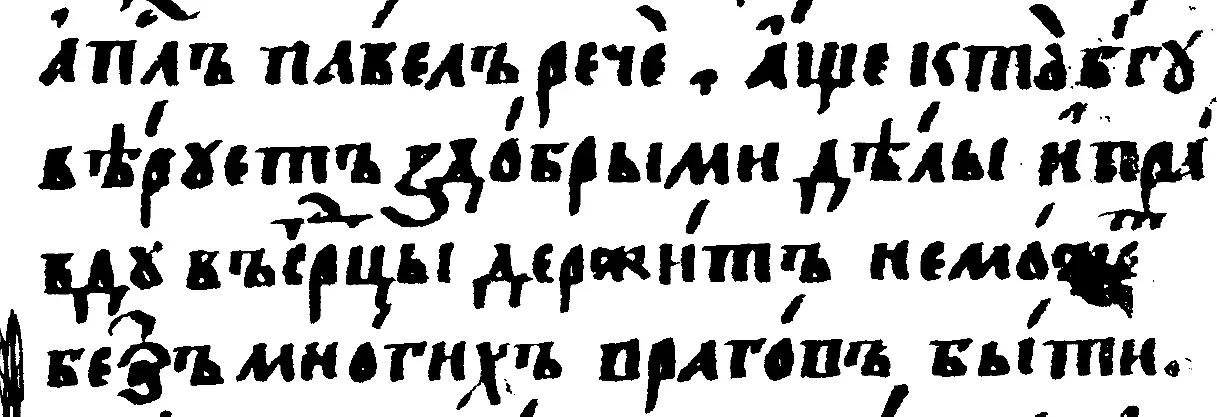 а҆пⷭ҇лъ па́велъ речѐ . а҆́ще кто̀ бг҃ꙋ
вѣ́рꙋетъ здо́брыми дѣ́лы и҆ пра́
вдꙋ въ срⷣцы держи́тъ немо́жеⷮ
беⷥзъ мно́гихъ враго́въ бы́ти.